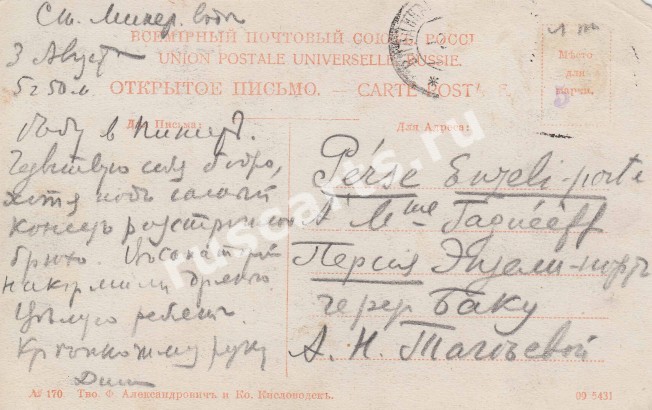 Ст. Минер. Воды
3 Август
5 г 50 м.
ВСЕМІРНЫЙ ПОЧТОВЫЙ СОЮЗЪ. РОССІЯ
UNION POSTALE UNIVERSELLE. RUSSIE.
ОТКРЫТОЕ ПИСЬМО. — CARTE POSTALE.
Мѣсто
для
марки.
Для Письма:
Для Адреса:
въ
Чувствую себя бодро,
хотя подъ самый
конецъ разстроило
брюхо.
накормили дрянью.
Цѣлую
руку
Perse Enzeli-porte
A Mme Taguéeff
Персія Энзели-портъ
черезъ Баку
А. Н. Тагѣевой
№ 170. Тво. Ф. Александровичъ и Ко. Кисловодскъ.
09 5431
ruscarts.ru